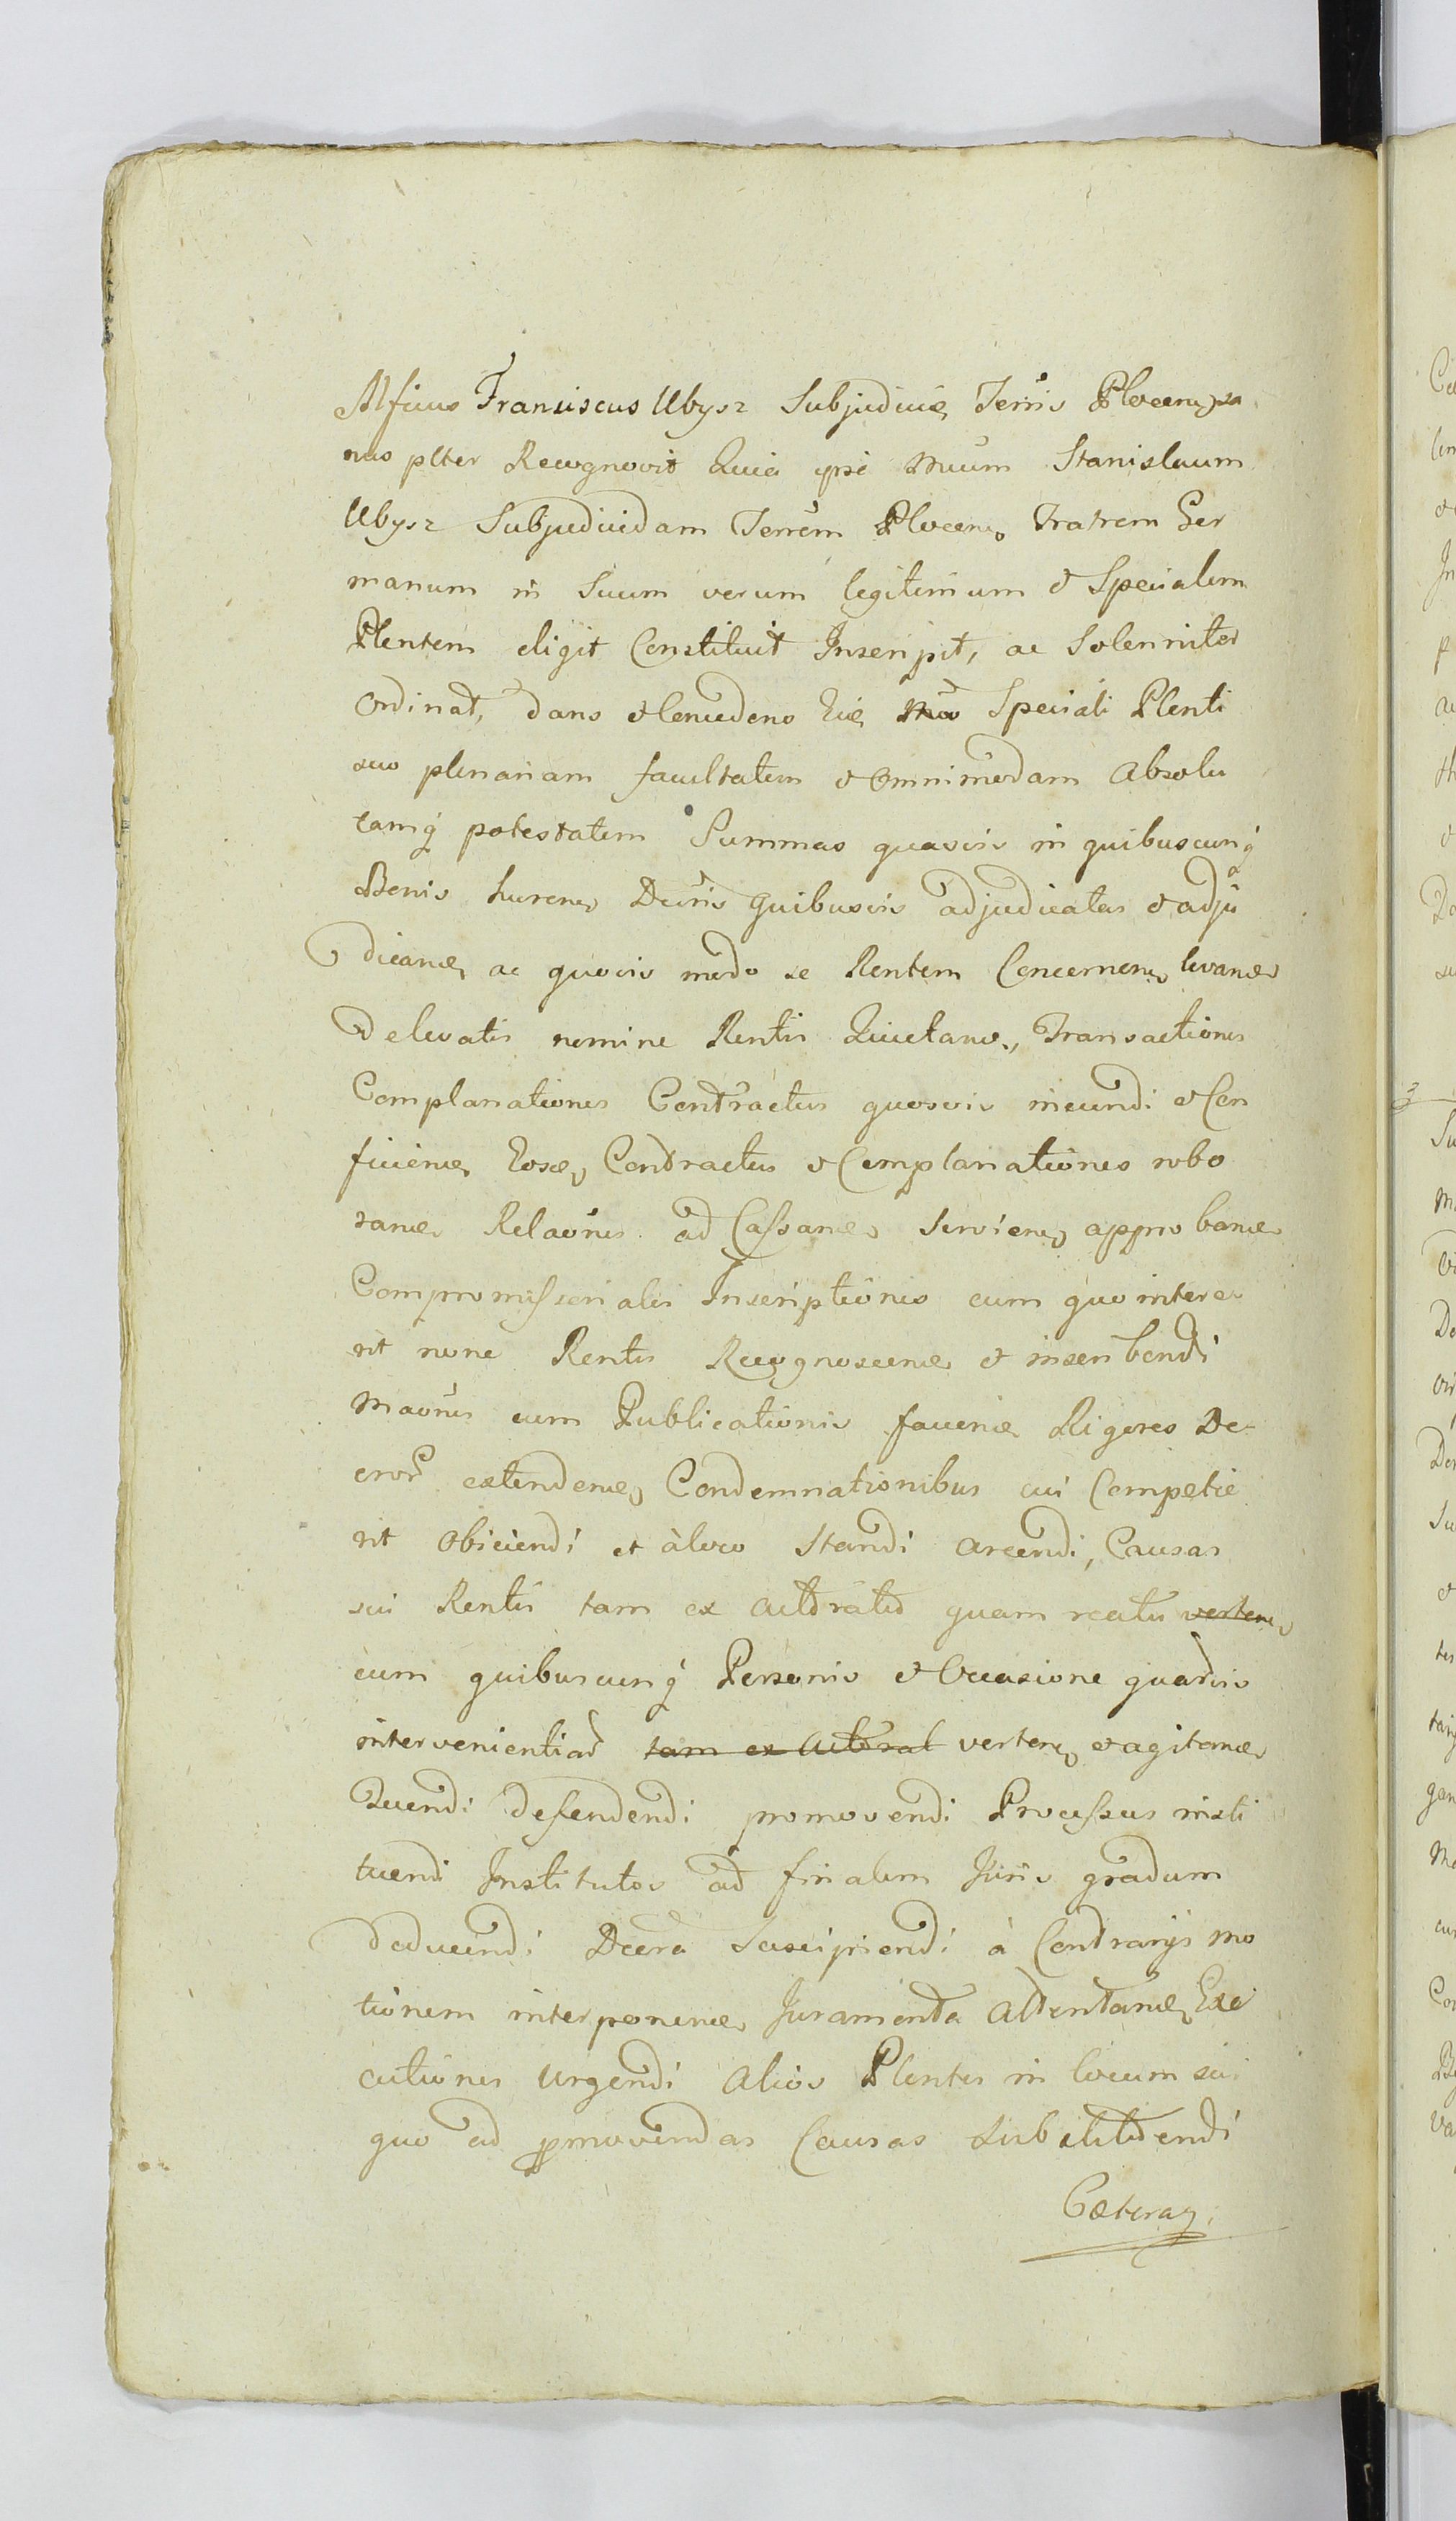 Mficus Franciscus Ubysz Subjudicis Terris Plocen, sa
nus plter Recognovit Quia ipse Mcum Stanislaum
Ubysz Subjudicidam Terrem Plocen, Fratrem Ger
manum in Suum verum legitimum et Specialem
Plentem eligit Constituit Inscripsit, ac Solenniter
Ordinat, dans et Concedens Eid Speciali Plenti
suo plenariam facultatem et Omnimodam Absolu
tamq́ potestatem Summas quasvis in quibuscunq́
Bonis haeren, Decris quibusvis adjudicatas et adju
dican, ac quovis modo se Rentem Concernen, levan,
delevatis nomine Rentis Quietan, Transactiones
Complanationes Contractus quosvis ineundi et Con
ficien, Eosq, Contractus et Complanationes robo
ran, Relaones ad Cassan, Servien, approban,
Compromissoriales Inscriptiones cum quo intere
rit none Rentis Recognoscen, et inscribendi
Maones cum Publicationis facien, Rigores De-
cror extenden, Condemnationibus cui Competie
rit Obiciendi et à loco Standi arcendi, Causas
sui Rentis tam ex actoratu quam reatu verten,
cum quibuscunq́ Personis et Occasione quarvis
intervenientiar tam ex Actorat verten, et agitan,
Tuendi defendendi promovendi Processus insti
tuendi Institutos ad finalem Juris gradum
deducendi Decra Suscipiendi à Contrarys mo
tionem interponen, Juramenta attentan, Exe
cutiones urgendi alios Plentes in locum sui
quo ad promovendas Causas substituendi
Caetera,